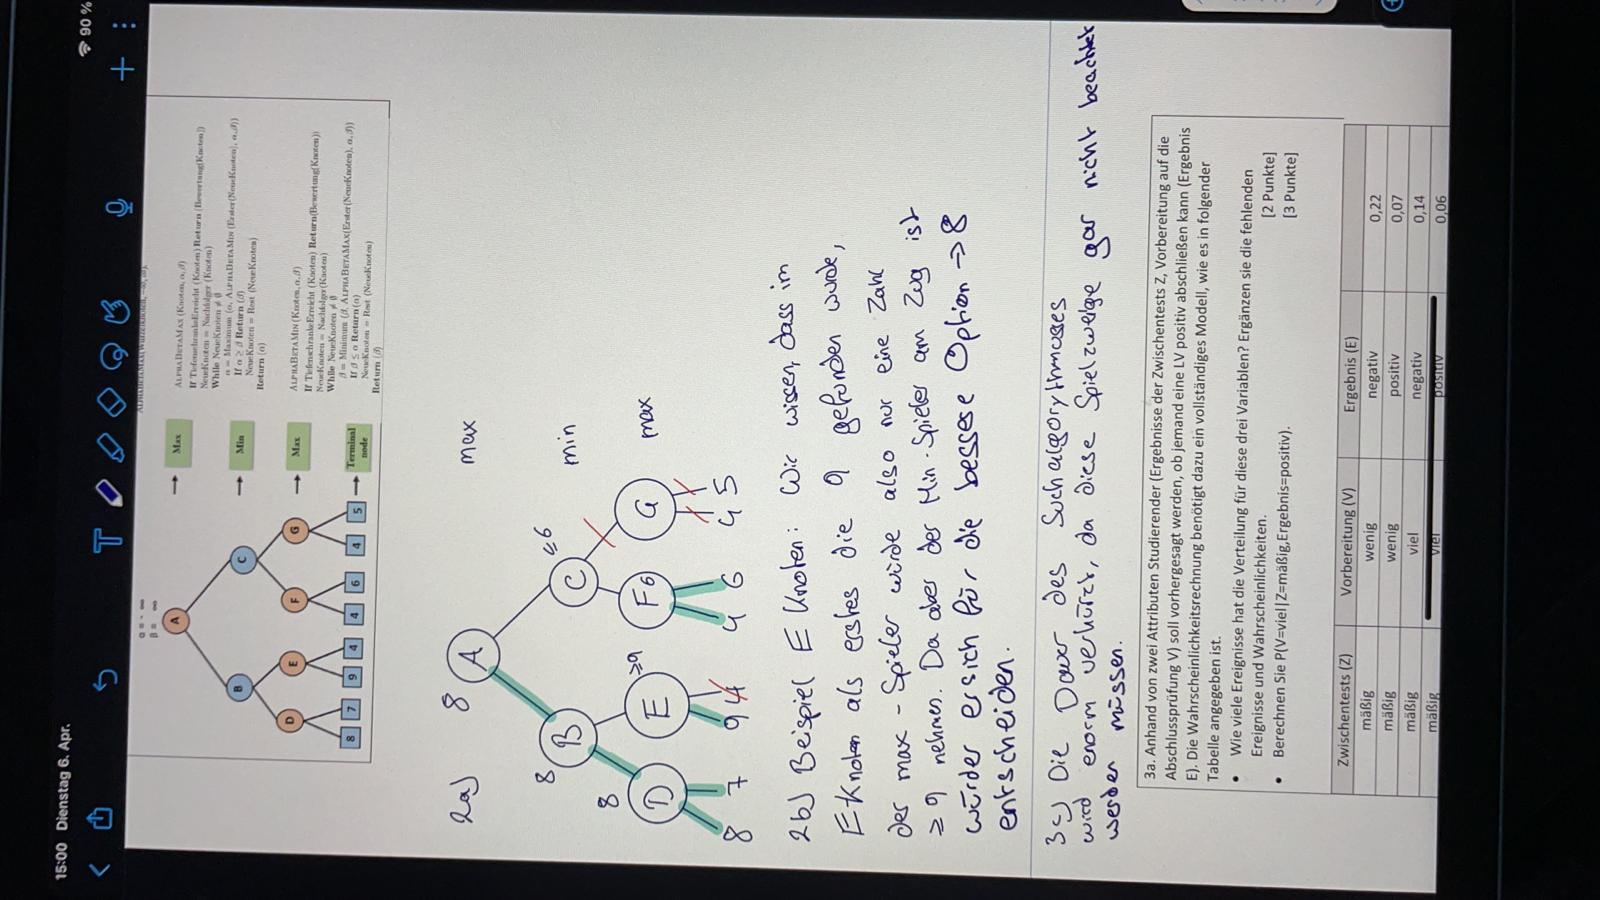 15:00 Dienstag 6. Apr.
90 %
T
α = - ∞
β = ∞
ALPHABETAMAX(Wurzelknoten, −∞, ∞).
A
Max
B
C
Min
D
E
F
G
Max
8 7 9 4 4 6 4 5
Terminal
node
ALPHABETAMAX (Knoten, α, β)
If TiefenschrankeErreicht (Knoten) Return (Bewertung(Knoten))
NeueKnoten = Nachfolger (Knoten)
While NeueKnoten ≠ ∅
α = Maximum (α, ALPHABETAMIN (Erster(NeueKnoten), α, β))
If α ≥ β Return (β)
NeueKnoten = Rest (NeueKnoten)
Return (α)
ALPHABETAMIN (Knoten, α, β)
If TiefenschrankeErreicht (Knoten) Return(Bewertung(Knoten))
NeueKnoten = Nachfolger(Knoten)
While NeueKnoten ≠ ∅
β = Minimum (β, ALPHABETAMAX(Erster(NeueKnoten), α, β))
If β ≤ α Return(α)
NeueKnoten = Rest (NeueKnoten)
Return (β)
2a)
8 A max
8 B C ≤6 min
8 D E ≥9 F6 G max
8 7 9 4 4 6 4 5
2b) Beispiel E Knoten: Wir wissen, dass im
E Knoten als erstes die 9 gefunden wurde,
der max - Spieler würde also nur eine Zahl
≥ 9 nehmen. Da aber der Min-Spieler am Zug ist
würder er sich für die bessere Option → 8
entscheiden.
3c) Die Dauer des Suchalgorythmusses
wird enorm verkürzt, da diese Spielzweige gar nicht beachtet
werden müssen.
3a. Anhand von zwei Attributen Studierender (Ergebnisse der Zwischentests Z, Vorbereitung auf die
Abschlussprüfung V) soll vorhergesagt werden, ob jemand eine LV positiv abschließen kann (Ergebnis
E). Die Wahrscheinlichkeitsrechnung benötigt dazu ein vollständiges Modell, wie es in folgender
Tabelle angegeben ist.
• Wie viele Ereignisse hat die Verteilung für diese drei Variablen? Ergänzen sie die fehlenden
Ereignisse und Wahrscheinlichkeiten. [2 Punkte]
• Berechnen Sie P(V=viel|Z=mäßig,Ergebnis=positiv). [3 Punkte]
Zwischentests (Z) Vorbereitung (V) Ergebnis (E)
mäßig wenig negativ 0,22
mäßig wenig positiv 0,07
mäßig viel negativ 0,14
mäßig viel positiv 0,06